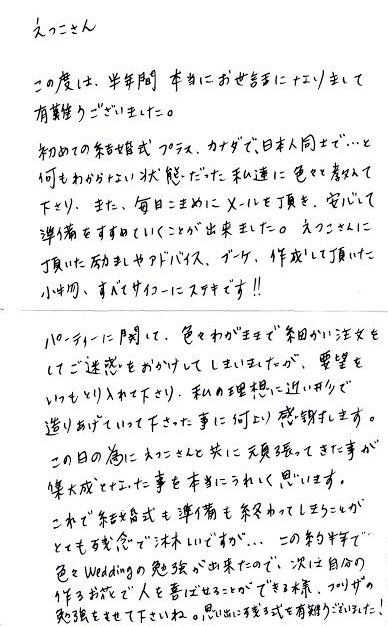 えつこさん
この度は、半年間 本当にお世話になりまして
有難うございました。
初めての結婚式プラス、カナダで日本人同士で…と
何もわからない状態だった私達に色々と教えて
下さり、また、毎日こまめにメールを頂き、安心して
準備をすすめていくことが出来ました。えつこさんに
頂いた励ましやアドバイス、ブーケ、作成して頂いた
小物、すべてサイコーにステキです!!
パーティーに関して、色々わがままで細かい注文を
してご迷惑をおかけしてしまいましたが、要望を
いつもとり入れて下さり、私の理想に近い形で
造りあげていって下さった事に何より感謝します。
この日の為にえつこさんと共に頑張ってきた事が
集大成となった事を本当にうれしく思います。
これで結婚式も準備も終わってしまうことが
とても残念で淋しいですが… この約半年で
色々Weddingの勉強が出来たので、次は自分の
作るお花で人を喜ばせることができる様、プリザの
勉強をさせて下さいね。思い出に残る式を有難うございました!